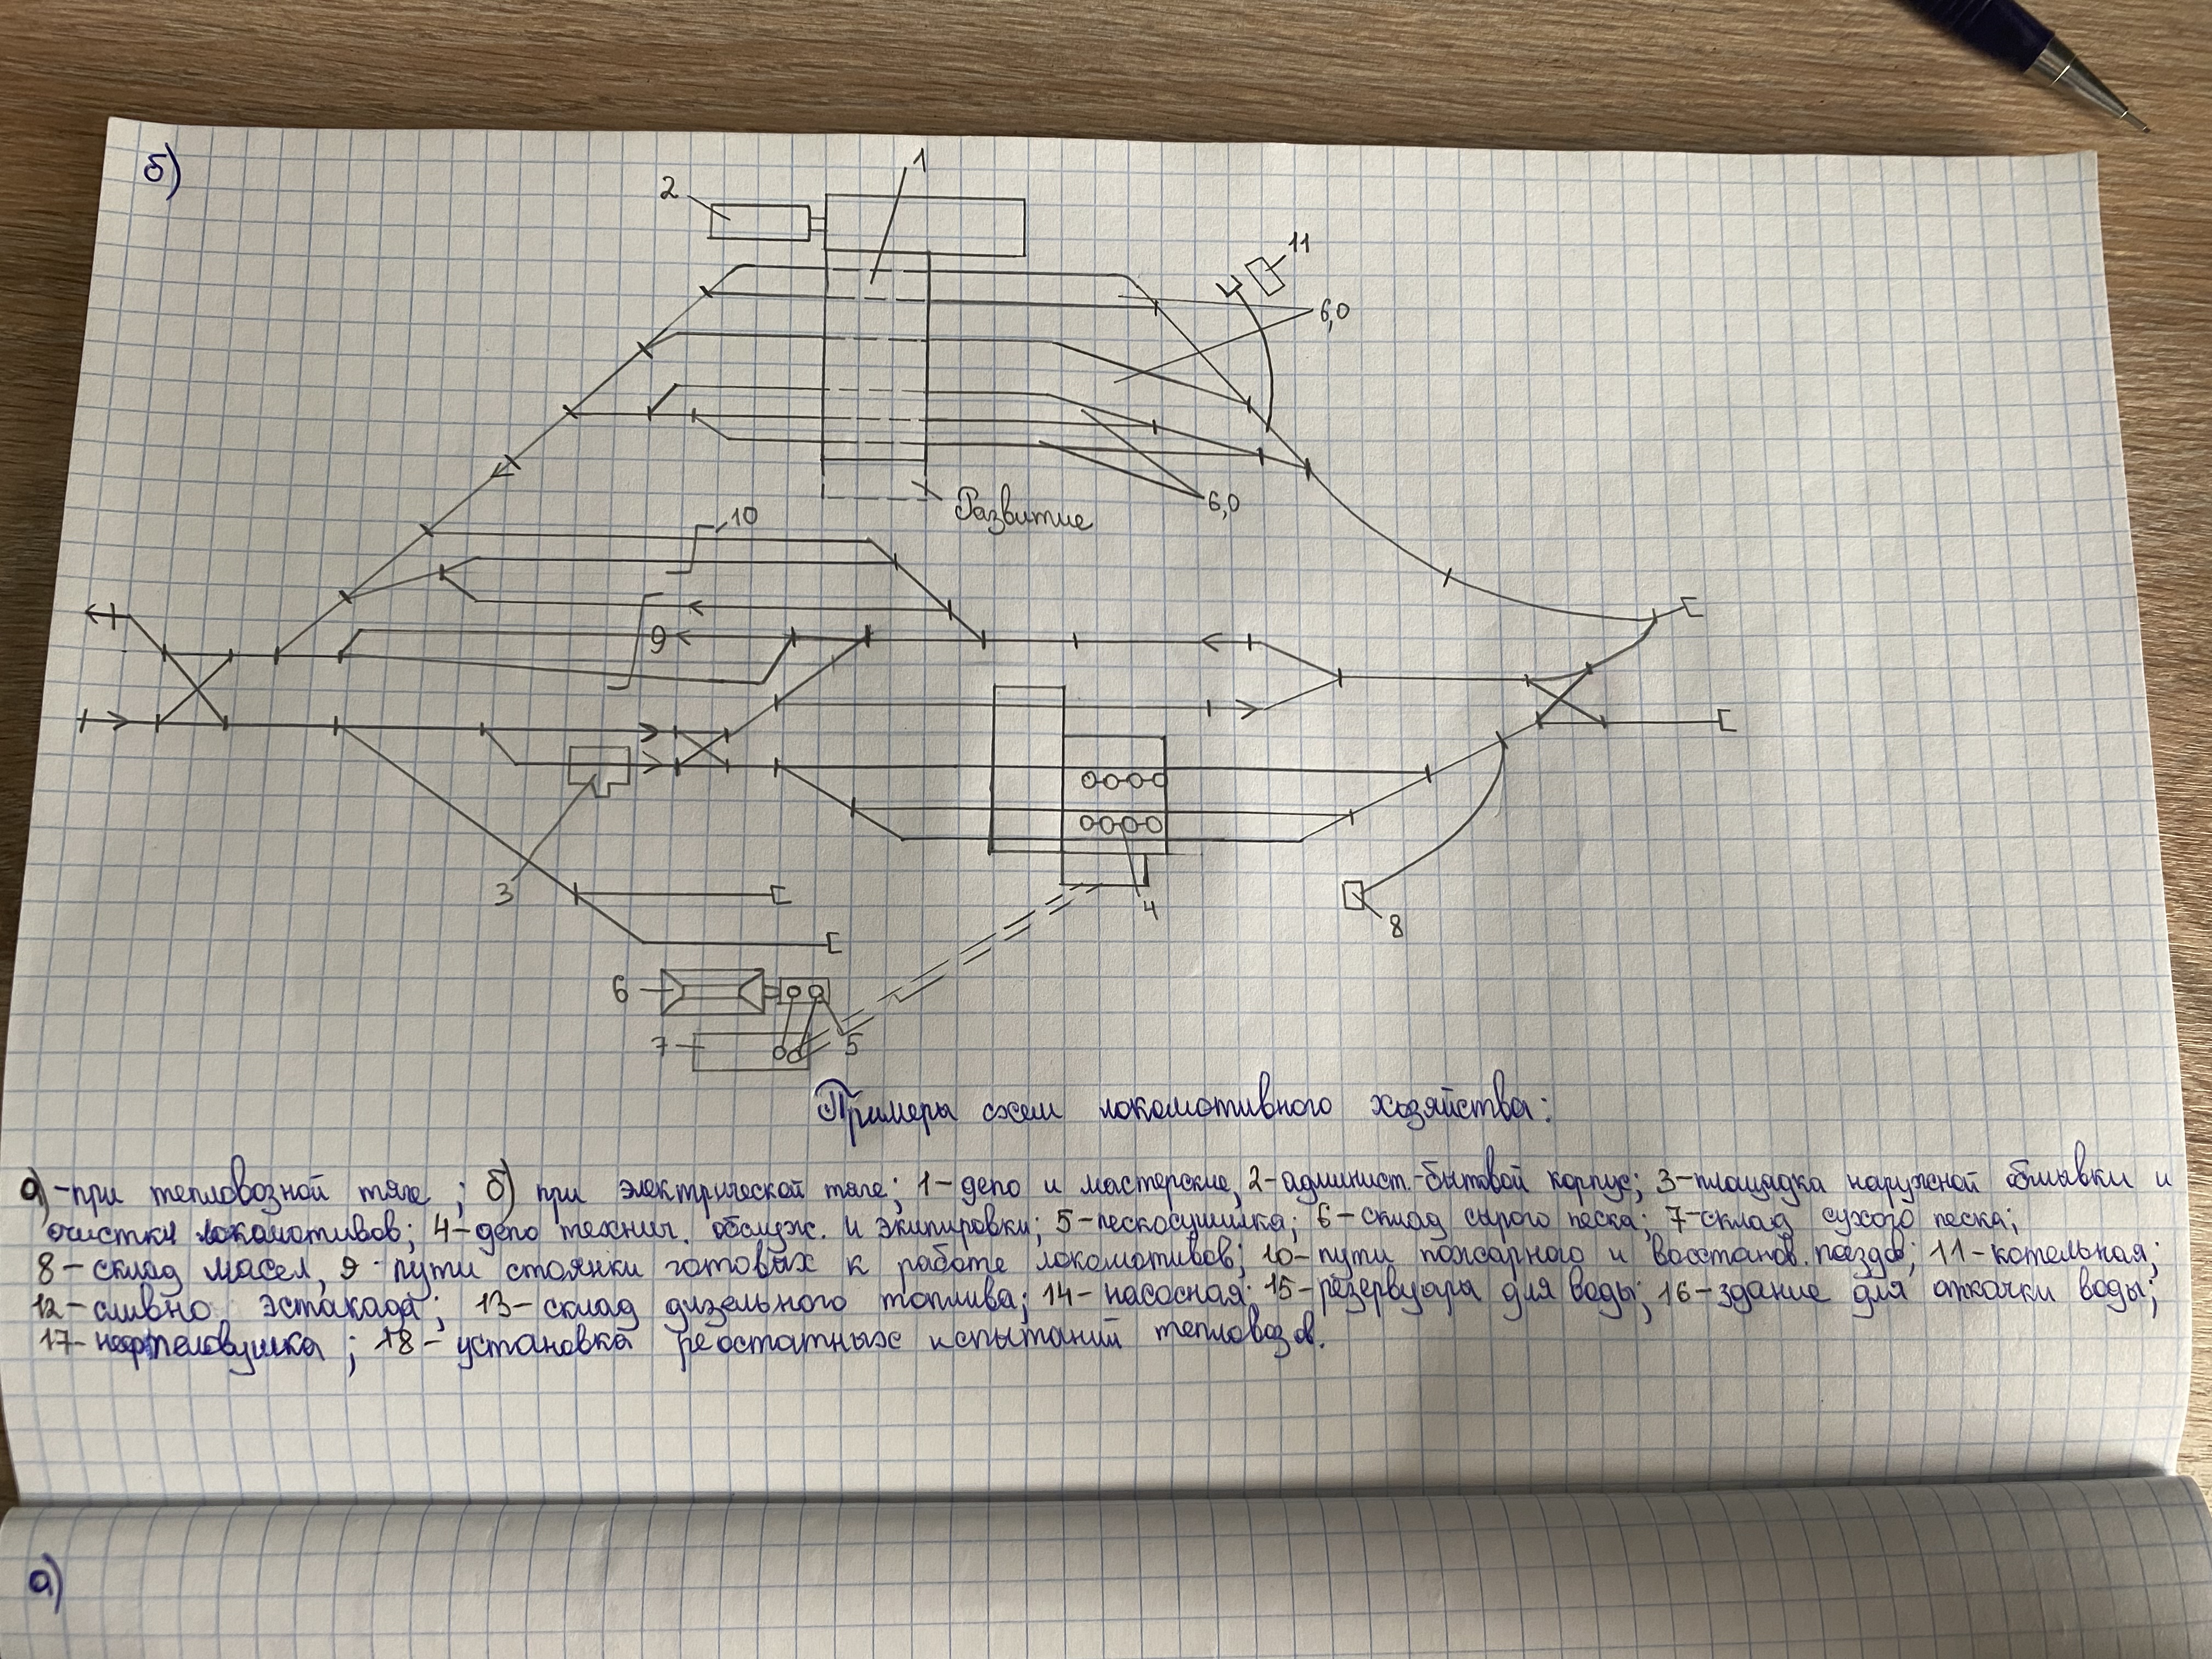 б)
1
2
11
6,0
6,0
Развитие
10
9
3
4
8
6
7
5
Примеры схем локомотивного хозяйства:
а)-при тепловозной тяге; б) при электрической тяге; 1-депо и мастерские, 2-админист.-бытовой корпус; 3-площадка наружной обмывки и
очистки локомотивов; 4-депо технич. обслуж. и экипировки; 5-пескосушилка; 6-склад сырого песка; 7-склад сухого песка;
8-склад масел, 9-пути стоянки готовых к работе локомотивов; 10-пути пожарного и восстанов. поездов; 11-котельная;
12-сливно эстакада; 13-склад дизельного топлива; 14-насосная; 15-резервуары для воды; 16-здание для откачки воды;
17-нефтеловушка; 18-установка реостатных испытаний тепловозов.
а)